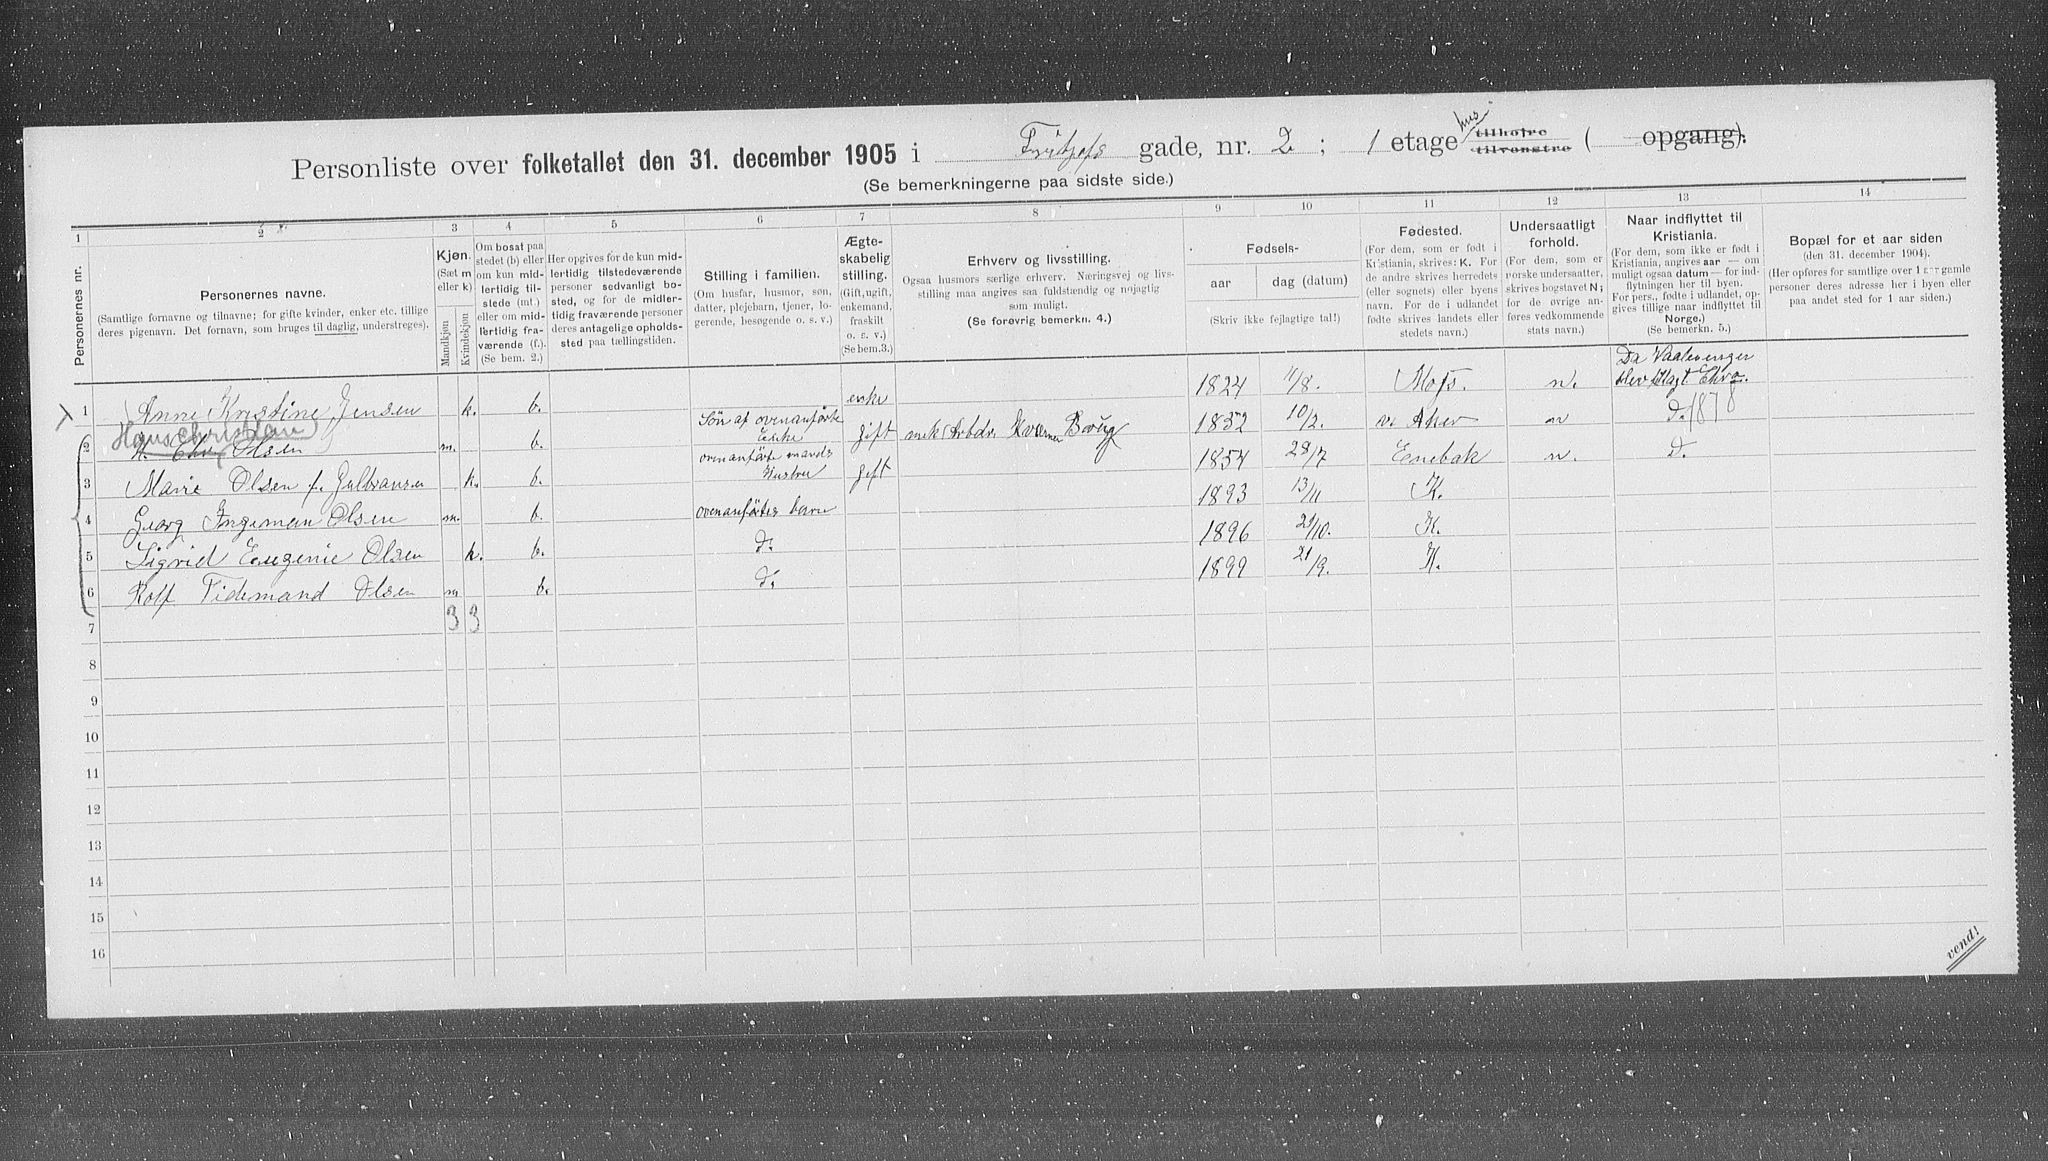 Personliste over folketallet den 31. december 1905 i Fritjofs gade, nr. 2 ; 1 etage hus tilhøjre tilvenstre ( opgang).
(Se bemerkningerne paa sidste side.)
1 2 3 4 5 6 7 8 9 10 11 12 13 14
Personernes nr.
Personernes navne.
(Samtlige fornavne og tilnavne; for gifte kvinder, enker etc. tillige
deres pigenavn. Det fornavn, som bruges til daglig, understreges).
Kjøn.
(Sæt m
eller k)
Mandkjøn
Kvindekjøn
Om bosat paa
stedet (b) eller
om kun mid-
lertidig til-
stede (mt.)
eller om mid-
lertidig fra-
værende (f.).
(Se bem. 2.)
Her opgives for de kun mid-
lertidig tilstedeværende
personer sedvanligt bo-
sted, og for de midler-
tidig fraværende personer
deres antagelige opholds-
sted paa tællingstiden.
Stilling i familien.
(Om husfar, husmor, søn,
datter, plejebarn, tjener, lo-
gerende, besøgende o. s. v.)
Ægte-
skabelig
stilling.
(Gift, ugift,
enkemand,
fraskilt
o. s. v.)
(Se bem.3.)
Erhverv og livsstilling.
Ogsaa husmors særlige erhverv. Næringsvej og livs-
stilling maa angives saa fuldstændig og nøjagtig
som muligt.
(Se forøvrig bemerkn. 4.)
Fødsels-
aar
dag (datum)
(Skriv ikke fejlagtige tal!)
Fødested.
(For dem, som er født i
Kristiania, skrives: K. For
de andre skrives herredets
(eller sognets) eller byens
navn. For de i udlandet
fødte skrives landets eller
stedets navn.)
Undersaatligt
forhold.
(For dem, som er
norske undersaatter,
skrives bogstavet N;
for de øvrige an-
føres vedkommende
stats navn.)
Naar indflyttet til
Kristiania.
(For dem, som ikke er født i
Kristiania, angives aar — om
muligt ogsaa datum — for ind-
flytningen her til byen.
For pers., fødte i udlandet, op-
gives tillige naar indflyttet til
Norge.)
(Se bemerkn. 5.)
Bopæl for et aar siden
(den 31. december 1904).
(Her opføres for samtlige over 1 aar gamle
personer deres adresse her i byen eller
paa andet sted for 1 aar siden.)
1 Anne Kristine Jensen k. b. enke 1824 11/8. Moss. n. Da Vaalerenger blev ilagt Chra.
2 Hans Christian H. Chr. Olsen m. b. Søn af ovenanførte Enke gift mek Arbdr Kværner Brug 1852 10/2. v. Aker n d. 1878
3 Marie Olsen f. Gulbransen k. b. ovenanførte mands Hustru gift 1854 28/7 Enebak n. d.
4 Georg Ingeman Olsen m. b. ovenanførtes barn 1893 13/11 K.
5 Sigrid Eugenie Olsen k. b. d. 1896 21/10. K.
6 Rolf Tidemand Olsen m b. d. 1899 21/9. K.
7 3 3
8
9
10
11
12
13
14
15
16
vend!